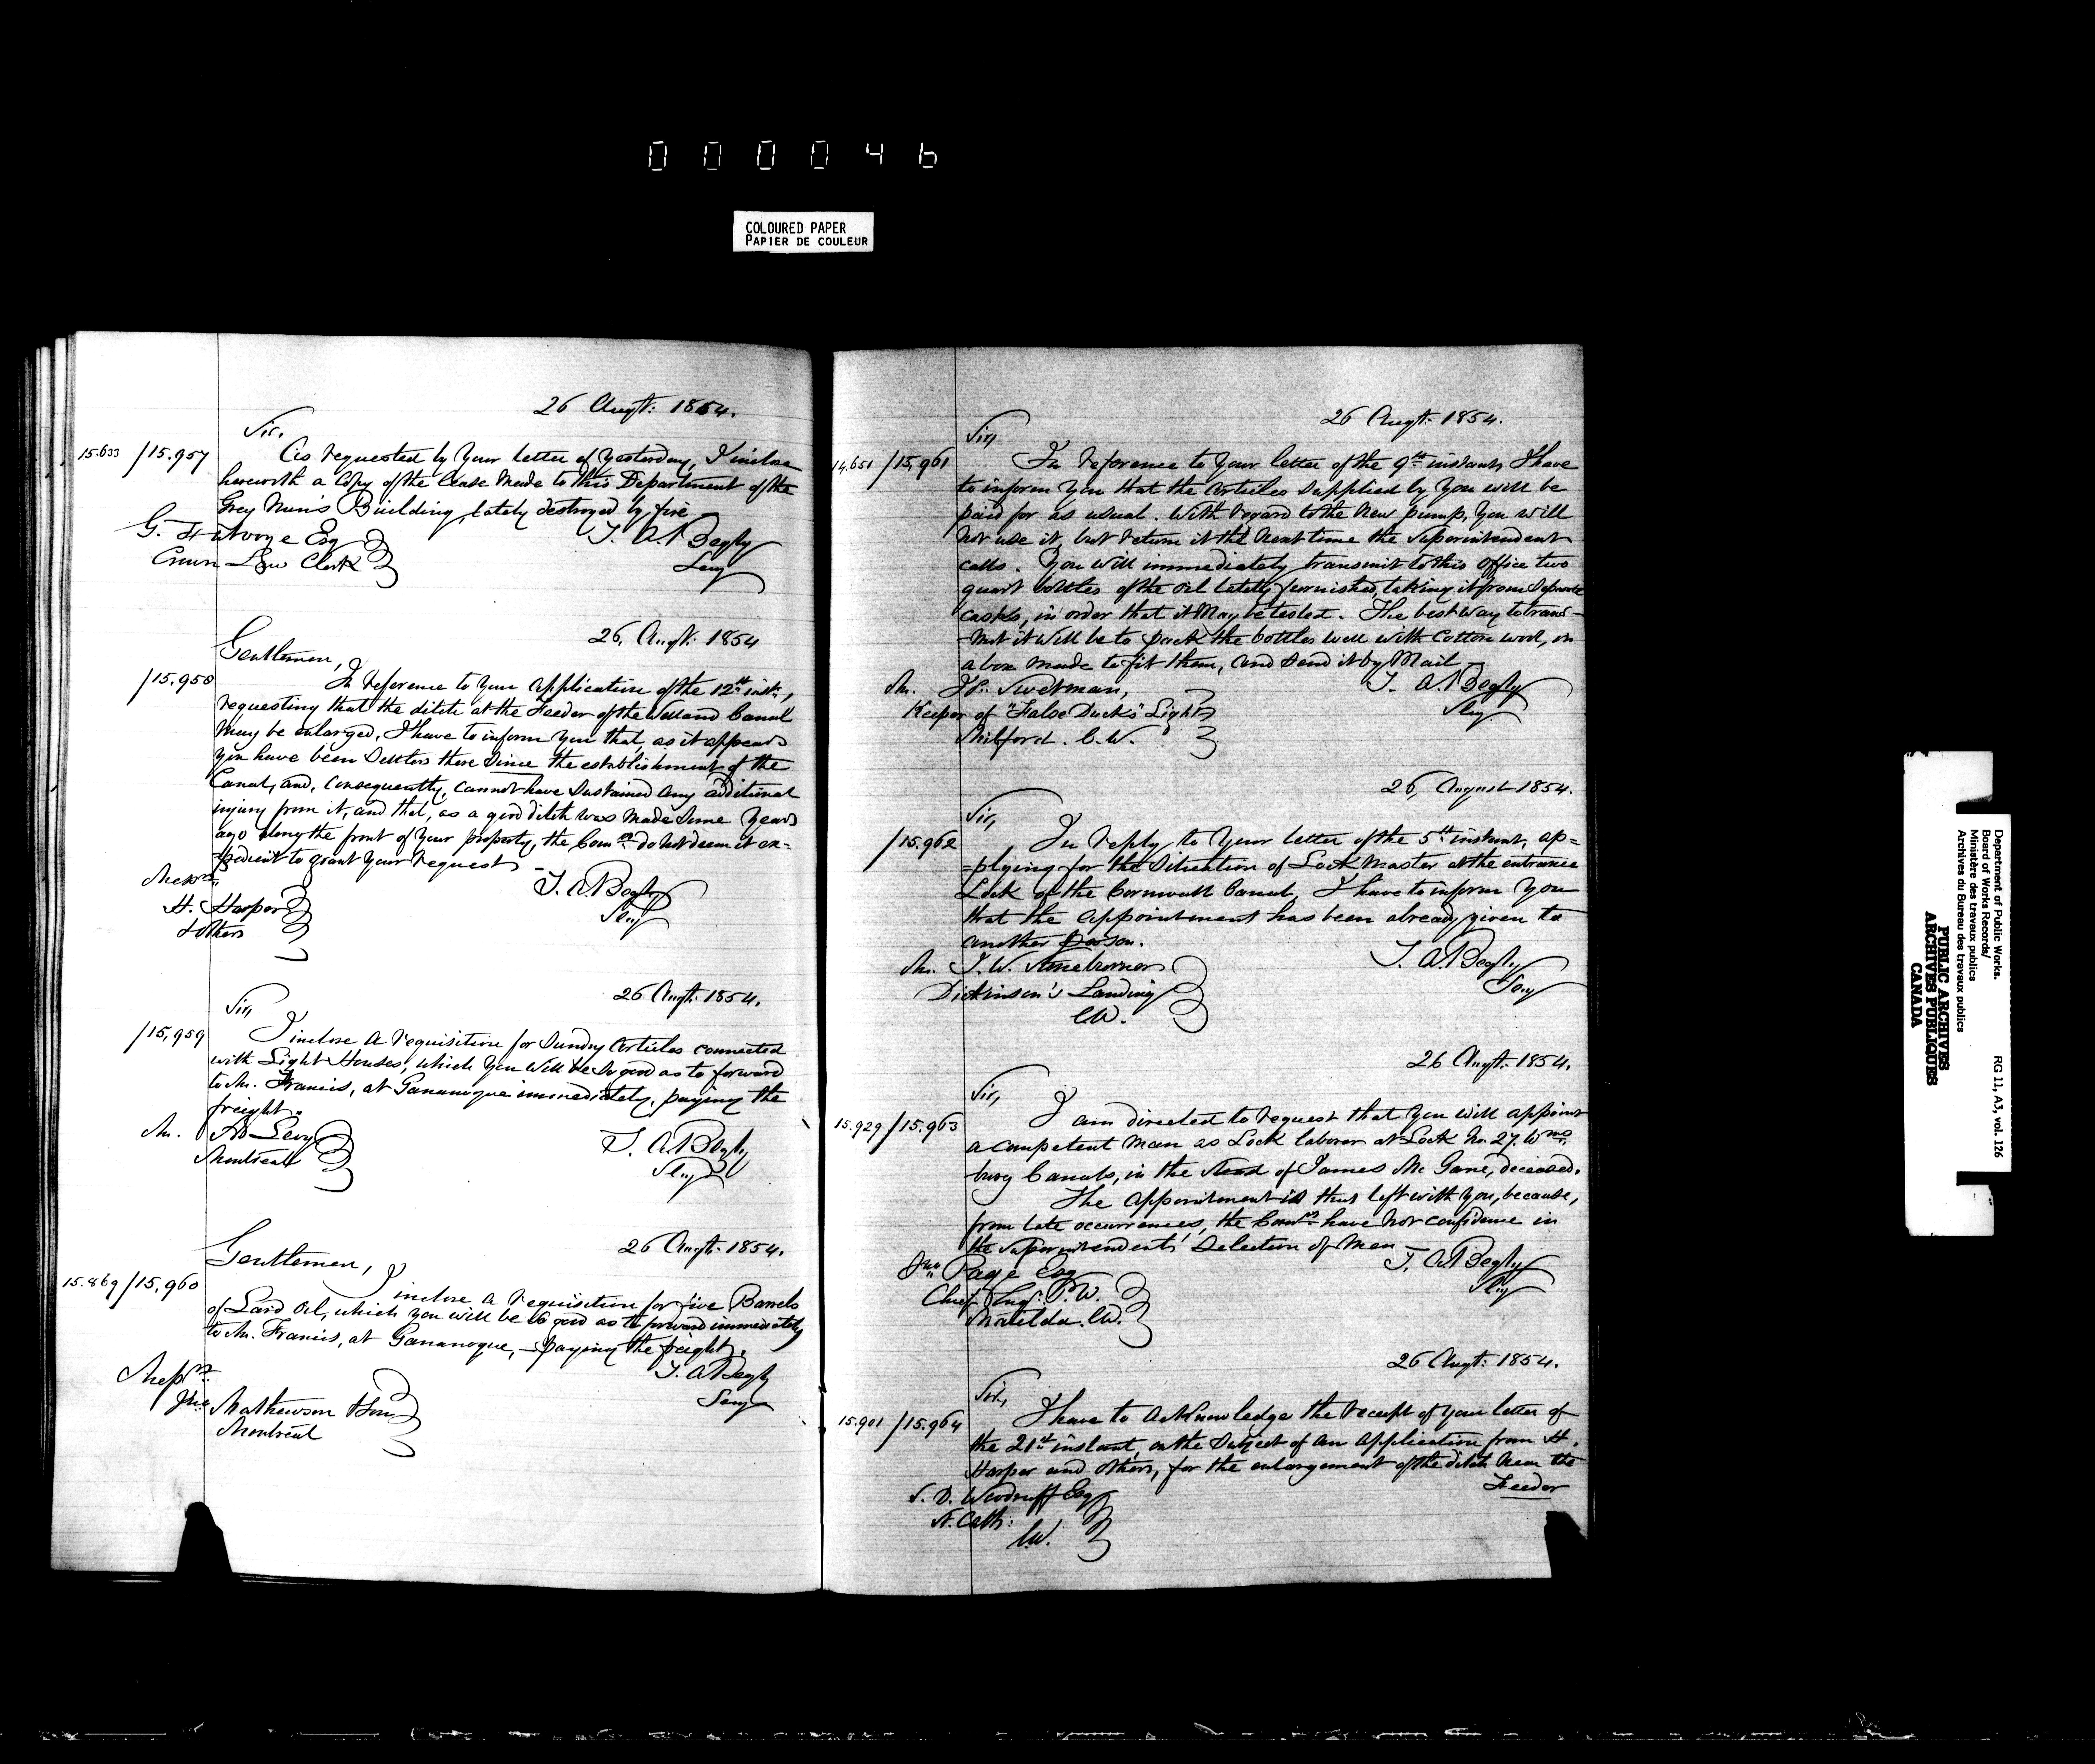 000046
COLOURED PAPER
PAPIER DE COULEUR
26 Augt: 1854.
Sir,
15.633 / 15.957
As requested by your letter of yesterday, I inclose
herewith a Copy of the lease made to this Department of the
Grey Nun's Building, lately destroyed by fire
G. Futvoye Esq
Crown Law Clerk
T. A. Begly
Secy
26, Augt: 1854
Gentlemen,
/ 15.958
In reference to your application of the 12th inst:,
requesting that the ditch at the Feeder of the Welland Canal
may be enlarged, I have to inform you that, as it appears
you have been Settlers there since the establishment of the
Canal, and, consequently, cannot have sustained any additional
injury from it, and that, as a good ditch was made some years
ago along the front of your property, the Comrs do not deem it ex=
=pedient to grant your request
Messrs
H. Harper
& others
T. A. Begly
Secy
26 Augt: 1854.
Sir,
/ 15,959
I inclose a requisition for sundry articles connected
with Light Houses, which you will be so good as to forward
to Mr. Francis, at Gananoque immediately, paying the
freight.
Mr. Levy
Montreal
T. A. Begly
Secy
26 Augt: 1854.
Gentlemen,
15.869 / 15,960
I inclose a requisition for five Barrels
of Lard Oil, which you will be so good as to forward immediately
to Mr. Francis, at Gananoque, - paying the freight.
Messrs
Jno Mathewson & Son
Montreal
T. A. Begly
Secy
26 Augt: 1854.
Sir,
14,651 / 15,961
In reference to your letter of the 9th instant, I have
to inform you that the articles supplied by you will be
paid for as usual. With regard to the new pump, you will
not use it, but return it the next time the Superintendent
calls. You will immediately transmit to this Office two
quart bottles of the oil lately furnished, taking it from separate
casks, in order that it may be tested. The best way to trans-
-mit it will be to pack the bottles well with cotton wool, in
a box made to fit them, and send it by Mail
Mr. Swetman,
Keeper of "False Ducks" Light
Milford. C.W.
T. A. Begly
Secy
26, August 1854.
Sir,
/ 15.962
In reply to your letter of the 5th instant, ap=
=plying for the situation of Lock Master at the entrance
Lock of the Cornwall Canal, I have to inform you
that the appointment has been already given to
another person.
Mr. J. W.
Dickinson's Landing
C.W.
T. A. Begly
Secy
26 Augt: 1854.
Sir,
15.929 / 15.963
I am directed to request that you will appoint
a competent man as Lock laborer at Lock No. 27. Wms=
burg Canals, in the stead of James Mc Gane, deceased.
The appointment is thus left with you, because,
from late occurrences, the Comrs have not confidence in
the superintendents' selection of men
Jno Page Esq
Chief Engr. P.W.
Matilda. C.W.
T. A. Begly
Secy
26 Augt: 1854.
Sir,
15.901 / 15.964
I have to acknowledge the receipt of your letter of
the 21st instant, on the subject of an application from H.
Harper and others, for the enlargement of the ditch near the
Feeder
S. D. Woodruff Esq
St. Cath:
C.W.
Department of Public Works.
Board of Works Records/
Ministère des travaux publics
Archives du Bureau des travaux publics
RG 11, A3, vol. 126
PUBLIC ARCHIVES
ARCHIVES PUBLIQUES
CANADA